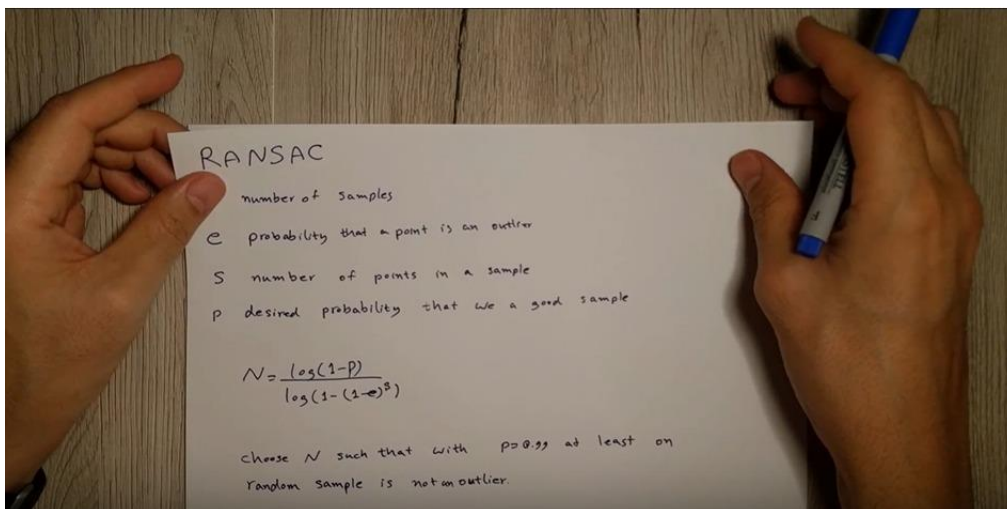 RANSAC
number of samples
e probability that a point is an outlier
s number of points in a sample
p desired probability that we a good sample
N = log(1-p) / log(1-(1-e)^s)
choose N such that with p=0.99 at least on
random sample is not an outlier.